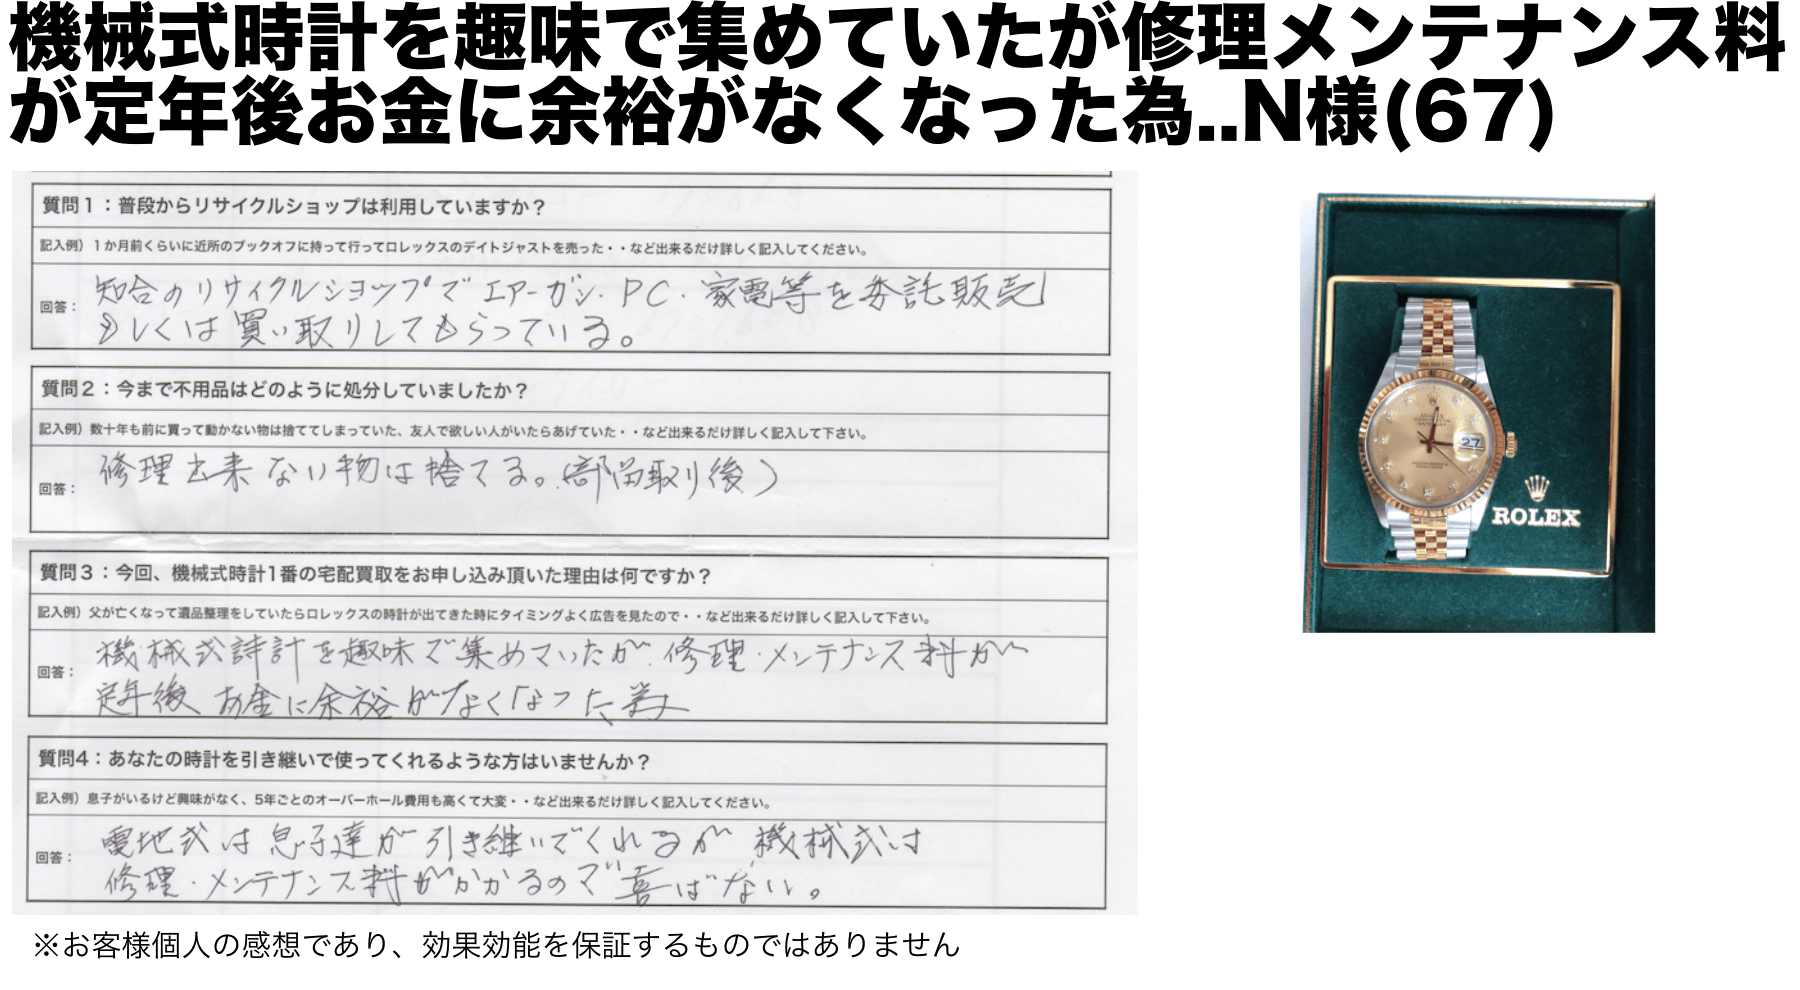 機械式時計を趣味で集めていたが修理メンテナンス料
が定年後お金に余裕がなくなった為..N様(67)
質問1：普段からリサイクルショップは利用していますか？
記入例）1か月前くらいに近所のブックオフに持って行ってロレックスのデイトジャストを売った・・など出来るだけ詳しく記入してください。
回答：
知合のリサイクルショップでエアーガン・PC・家電等を委託販売
もしくは買い取りしてもらっている。
質問2：今まで不用品はどのように処分していましたか？
記入例）数十年も前に買って動かない物は捨ててしまっていた、友人で欲しい人がいたらあげていた・・など出来るだけ詳しく記入して下さい。
回答：
修理出来ない物は捨てる。（部品取り後）
質問3：今回、機械式時計1番の宅配買取をお申し込み頂いた理由は何ですか？
記入例）父が亡くなって遺品整理をしていたらロレックスの時計が出てきた時にタイミングよく広告を見たので・・など出来るだけ詳しく記入して下さい。
回答：
機械式時計を趣味で集めていたが修理・メンテナンス料が
定年後お金に余裕がなくなった為
質問4：あなたの時計を引き継いで使ってくれるような方はいませんか？
記入例）息子がいるけど興味がなく、5年ごとのオーバーホール費用も高くて大変・・など出来るだけ詳しく記入してください。
回答：
電池式は息子達が引き継いでくれるが機械式は
修理・メンテナンス料がかかるので喜ばない。
※お客様個人の感想であり、効果効能を保証するものではありません
ROLEX
27
ROLEX